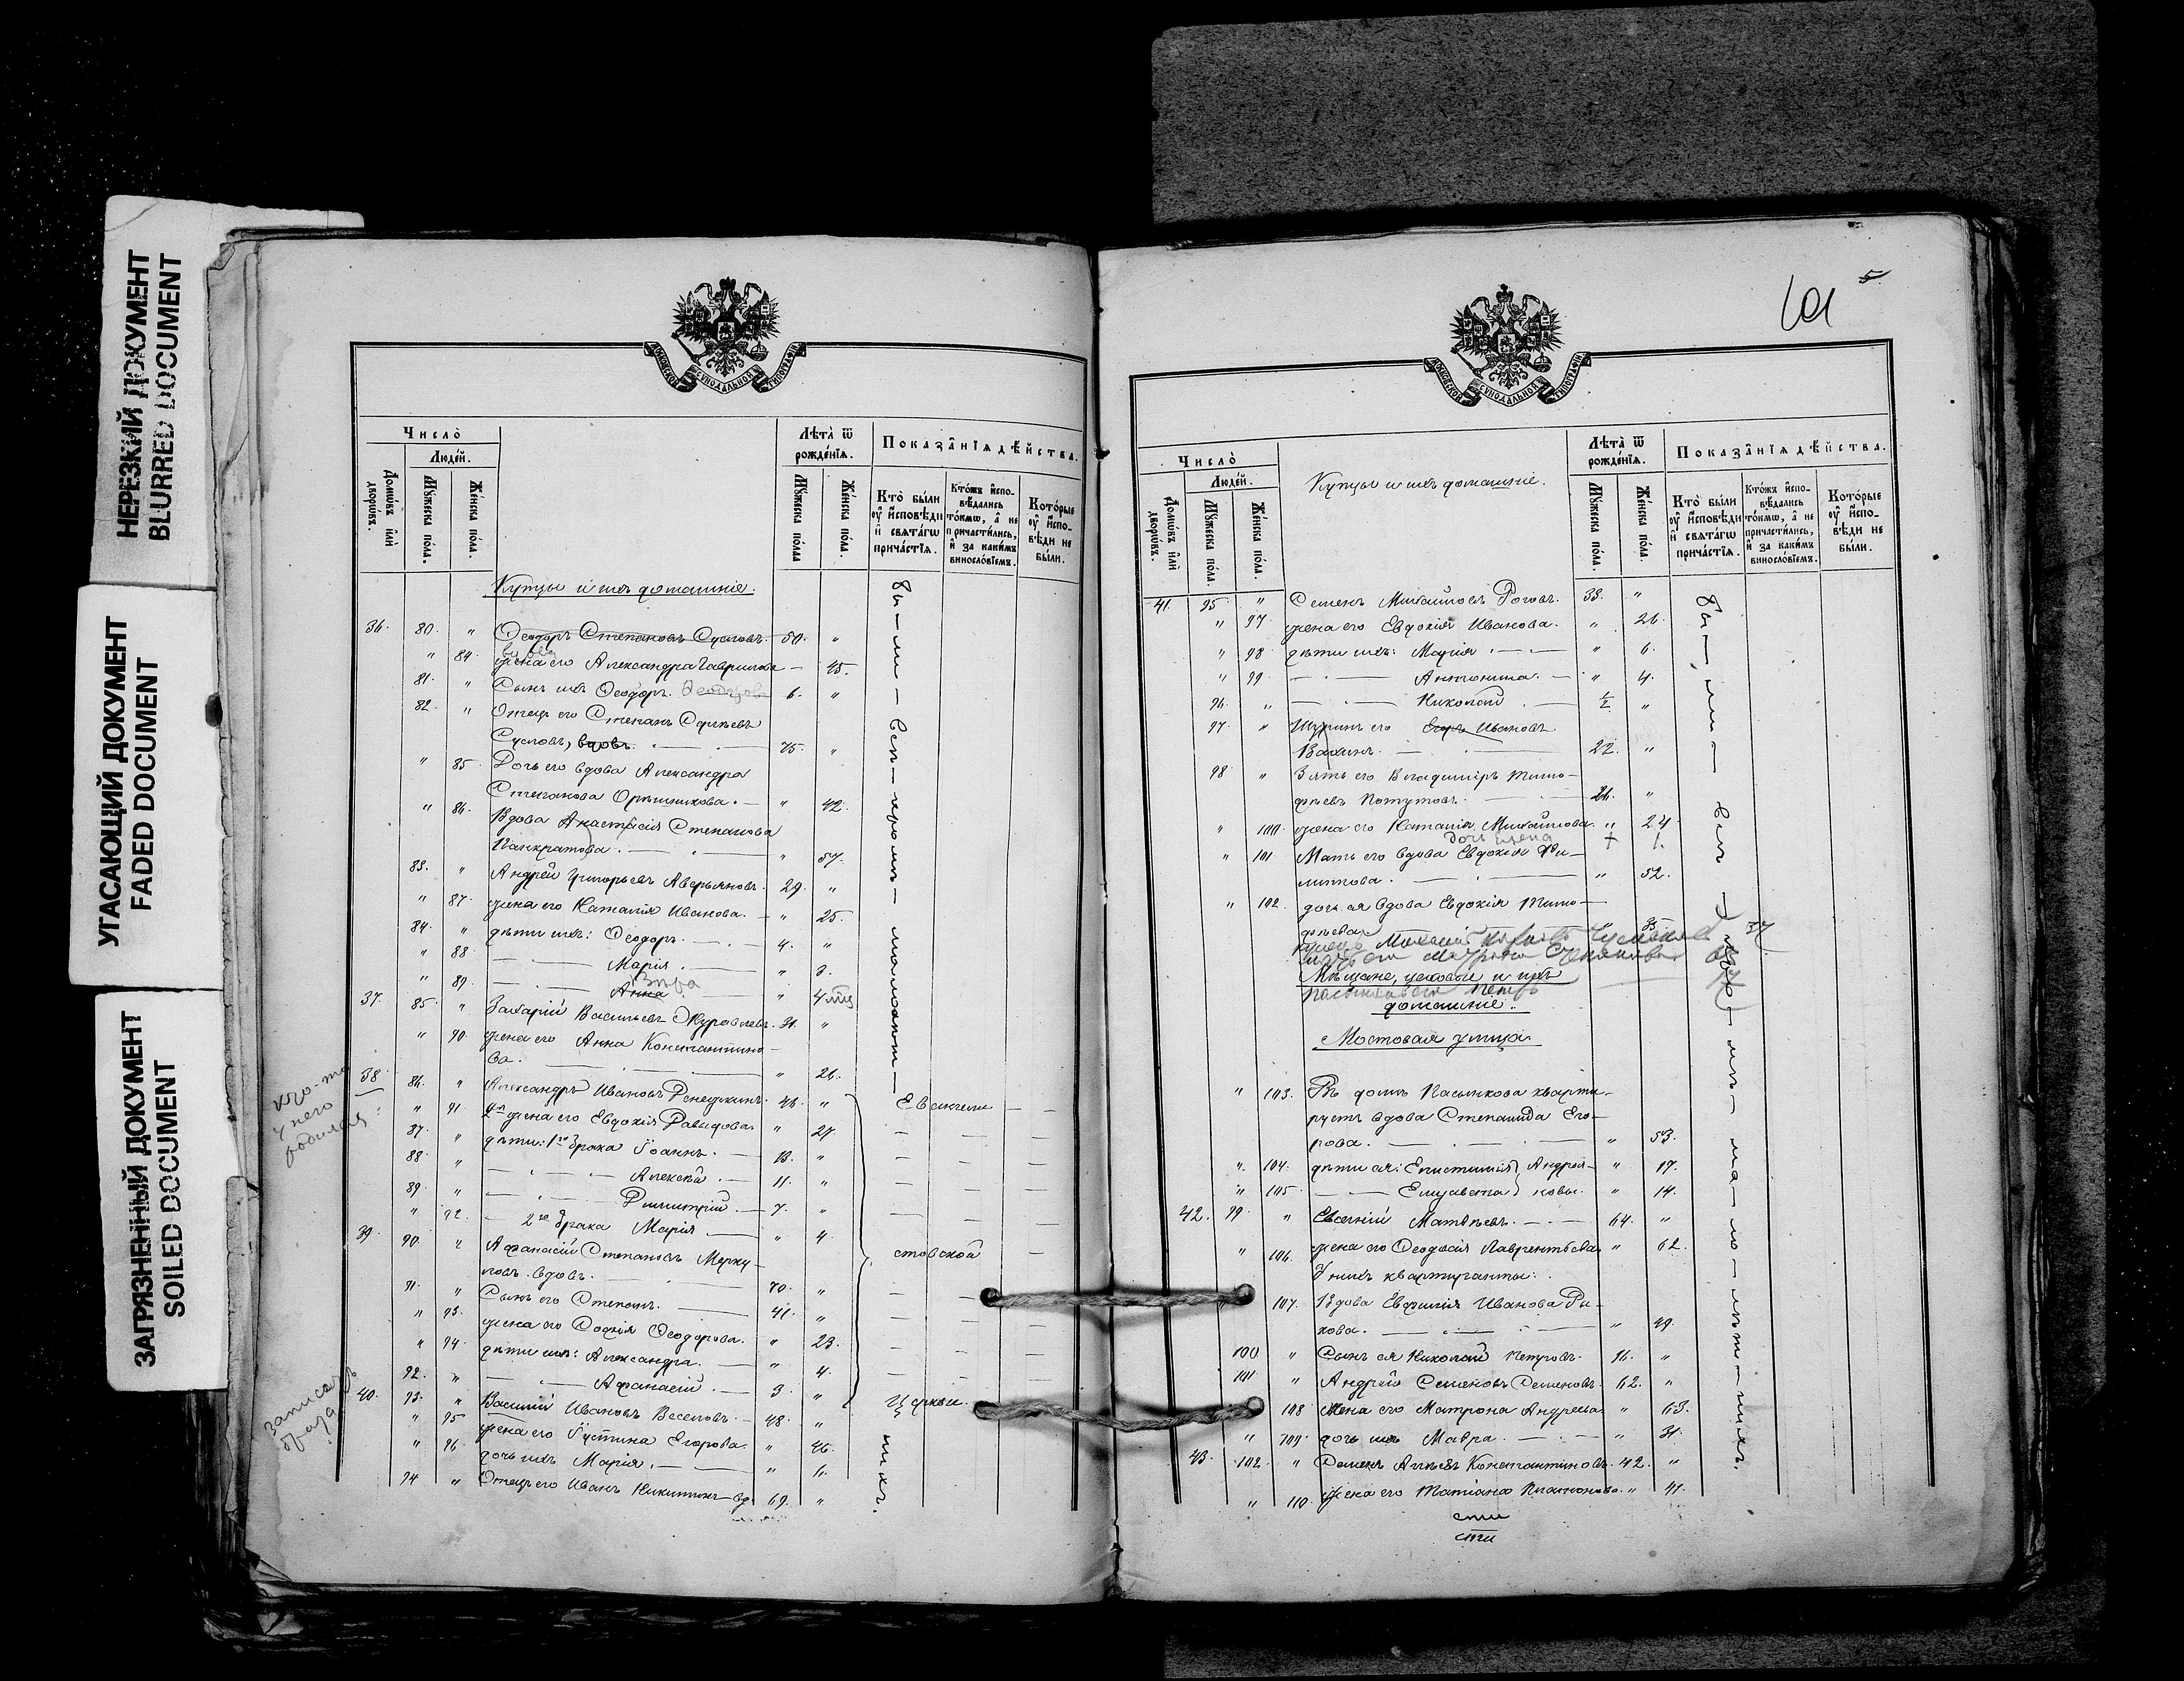 НЕРЕЗКИЙ ДОКУМЕНТ
BLURRED DOCUMENT
УГАСАЮЩИЙ ДОКУМЕНТ
FADED DOCUMENT
ЗАГРЯЗНЕННЫЙ ДОКУМЕНТ
SOILED DOCUMENT
МОСКОВСКОЙ СѴНОДАЛЬНОЙ ТИПОГРАФІИ
Число̀
Люде́й.
Домѡ́въ и҆лѝ дворѡ́въ.
Мꙋ́жеска по́ла.
Же́нска по́ла.
Лѣ́та ѿ рожде́нїѧ.
Мꙋ́жеска по́ла
Же́нска по́ла.
Показа̑нїѧ дѣ́йства.
Кто̀ бы́ли оу҆ и҆́сповѣди и҆ свѧта́гѡ прича́стїѧ.
Кто́жъ и҆спо-вѣ́дались то́кмѡ, а҆ не причасти́лись, и҆ за каки́мъ виносло́вїемъ.
Кото́рые оу҆ и҆́спо-вѣди не бы́ли.
Купцы и ихъ домашніе.
36. 80. " Ѳеодоръ Степановъ Сусловъ. 50. "
вдова
" 84. жена его Александра Гаврилова — 45.
81. " Сынъ ихъ Ѳеодоръ. 6. "
82. " Отецъ его Степанъ
Сусловъ, вдовъ. — 75. "
" 85. Дочь его вдова Александра
Степанова — " 42.
" 86. Вдова Анастасія Степанова
Панкратова. — " 57.
83. " Андрей Григорьевъ Аверьяновъ. 29. "
" 87. жена его Наталія Иванова. — " 25.
84. " дѣти ихъ: Ѳеодоръ. — 4. "
" 88. — Марія. — " 3.
" 89. — Анна — " 4 мѣс
37. 85. " Захарій Васильевъ Журавлевъ. 31. "
" 90. жена его Анна Константино-
ва. — " 26.
кто-то
у него
родился
38. 86. " Александръ Ивановъ 46. "
" 91. 2я жена его Евдокія Давыдова. " 27.
87. " дѣти: 1го брака Іоаннъ. — 13. "
88. " — Алексѣй. — 11. "
89. " — Димитрій. — 7. "
" 92. — 2го брака Марія — " 4.
39. 90. " Аѳанасій Степановъ Мерку-
ловъ вдовъ. — 70. "
91. " Сынъ его Степанъ. — 41. "
" 93. жена его Софія Ѳеодорова. " 23.
" 94. дѣти ихъ: Александра. — " 4.
92. " — Аѳанасій. — 3. "
40. 93. " Василій Ивановъ Веселовъ. — 48. "
" 95 жена его Іустина Егорова. " 46.
" 96. дочь ихъ Марія. — "
94 " Отецъ его Иванъ Никитинъ — вд. 69. "
бы — ли — всѣ — кромѣ — малолѣт — нихъ.
Евангели
стовской
Церкви.
101
5
МОСКОВСКОЙ СѴНОДАЛЬНОЙ ТИПОГРАФІИ
Число̀
Люде́й.
Домѡ́въ и҆лѝ дворѡ́въ.
Мꙋ́жеска по́ла.
Же́нска по́ла.
Купцы и ихъ домашніе.
Лѣ́та ѿ рожде́нїѧ.
Мꙋ́жеска по́ла.
Же́нска по́ла.
Показа̑нїѧ дѣ́йства.
Кто̀ бы́ли оу҆ и҆́сповѣди и҆ свѧта́гѡ прича́стїѧ.
Кто́жъ и҆спо-вѣ́дались то́кмѡ, а҆ не причасти́лись, и҆ за каки́мъ виносло́вїемъ.
Кото́рые оу҆ и҆́спо-вѣди не бы́ли.
41. 95. " Семенъ Михайловъ Роговъ. 33. "
" 97. жена его Евдокія Иванова. " 26.
" 98. дѣти ихъ: Марія. — " 6.
" 99. — Антонина. — " 4.
96. " — Николай. — ½ "
97. " Шуринъ его Егоръ Ивановъ
22. "
98. " Зять его Владиміръ Тимо-
фѣевъ — 26. "
" 100. жена его Наталія Михайлова. " 24.
" 101. Мать его вдова Евдокія Фи-
липпова. — " 52.
" 102. дочь ея вдова Евдокія Тимо-
фѣева " 35
Мѣщане, цеховые и ихъ
домашніе.
Мостовая улица.
" 103. Въ домѣ Пасынкова кварти-
руетъ вдова Степанида Его-
рова. — " 53.
" 104. дѣти ея: Епистимія } Андрея- " 17.
" 105. — Елизавета } новы. " 14.
42. 99. " Евгеній Матвѣевъ. — 64. "
" 106. жена его Ѳеодосія Лаврентьева " 62.
У нихъ квартиранты:
107. Вдова Евфимія Иванова Ры-
кова. — " 49.
100 " Сынъ ея Николай Петровъ. 16. "
101 " Андрей Семеновъ Семеновъ. 62. "
108 Жена его Матрона Андреева " 63.
" 109. дочь ихъ Мавра. — " 31.
43. 102. " Семенъ Алексѣевъ Константиновъ. 42. "
" 110. Жена его Татіана Платонова. " 41.
бы — ли — всѣ — кро — мѣ — ма — ло — лѣт — нихъ.